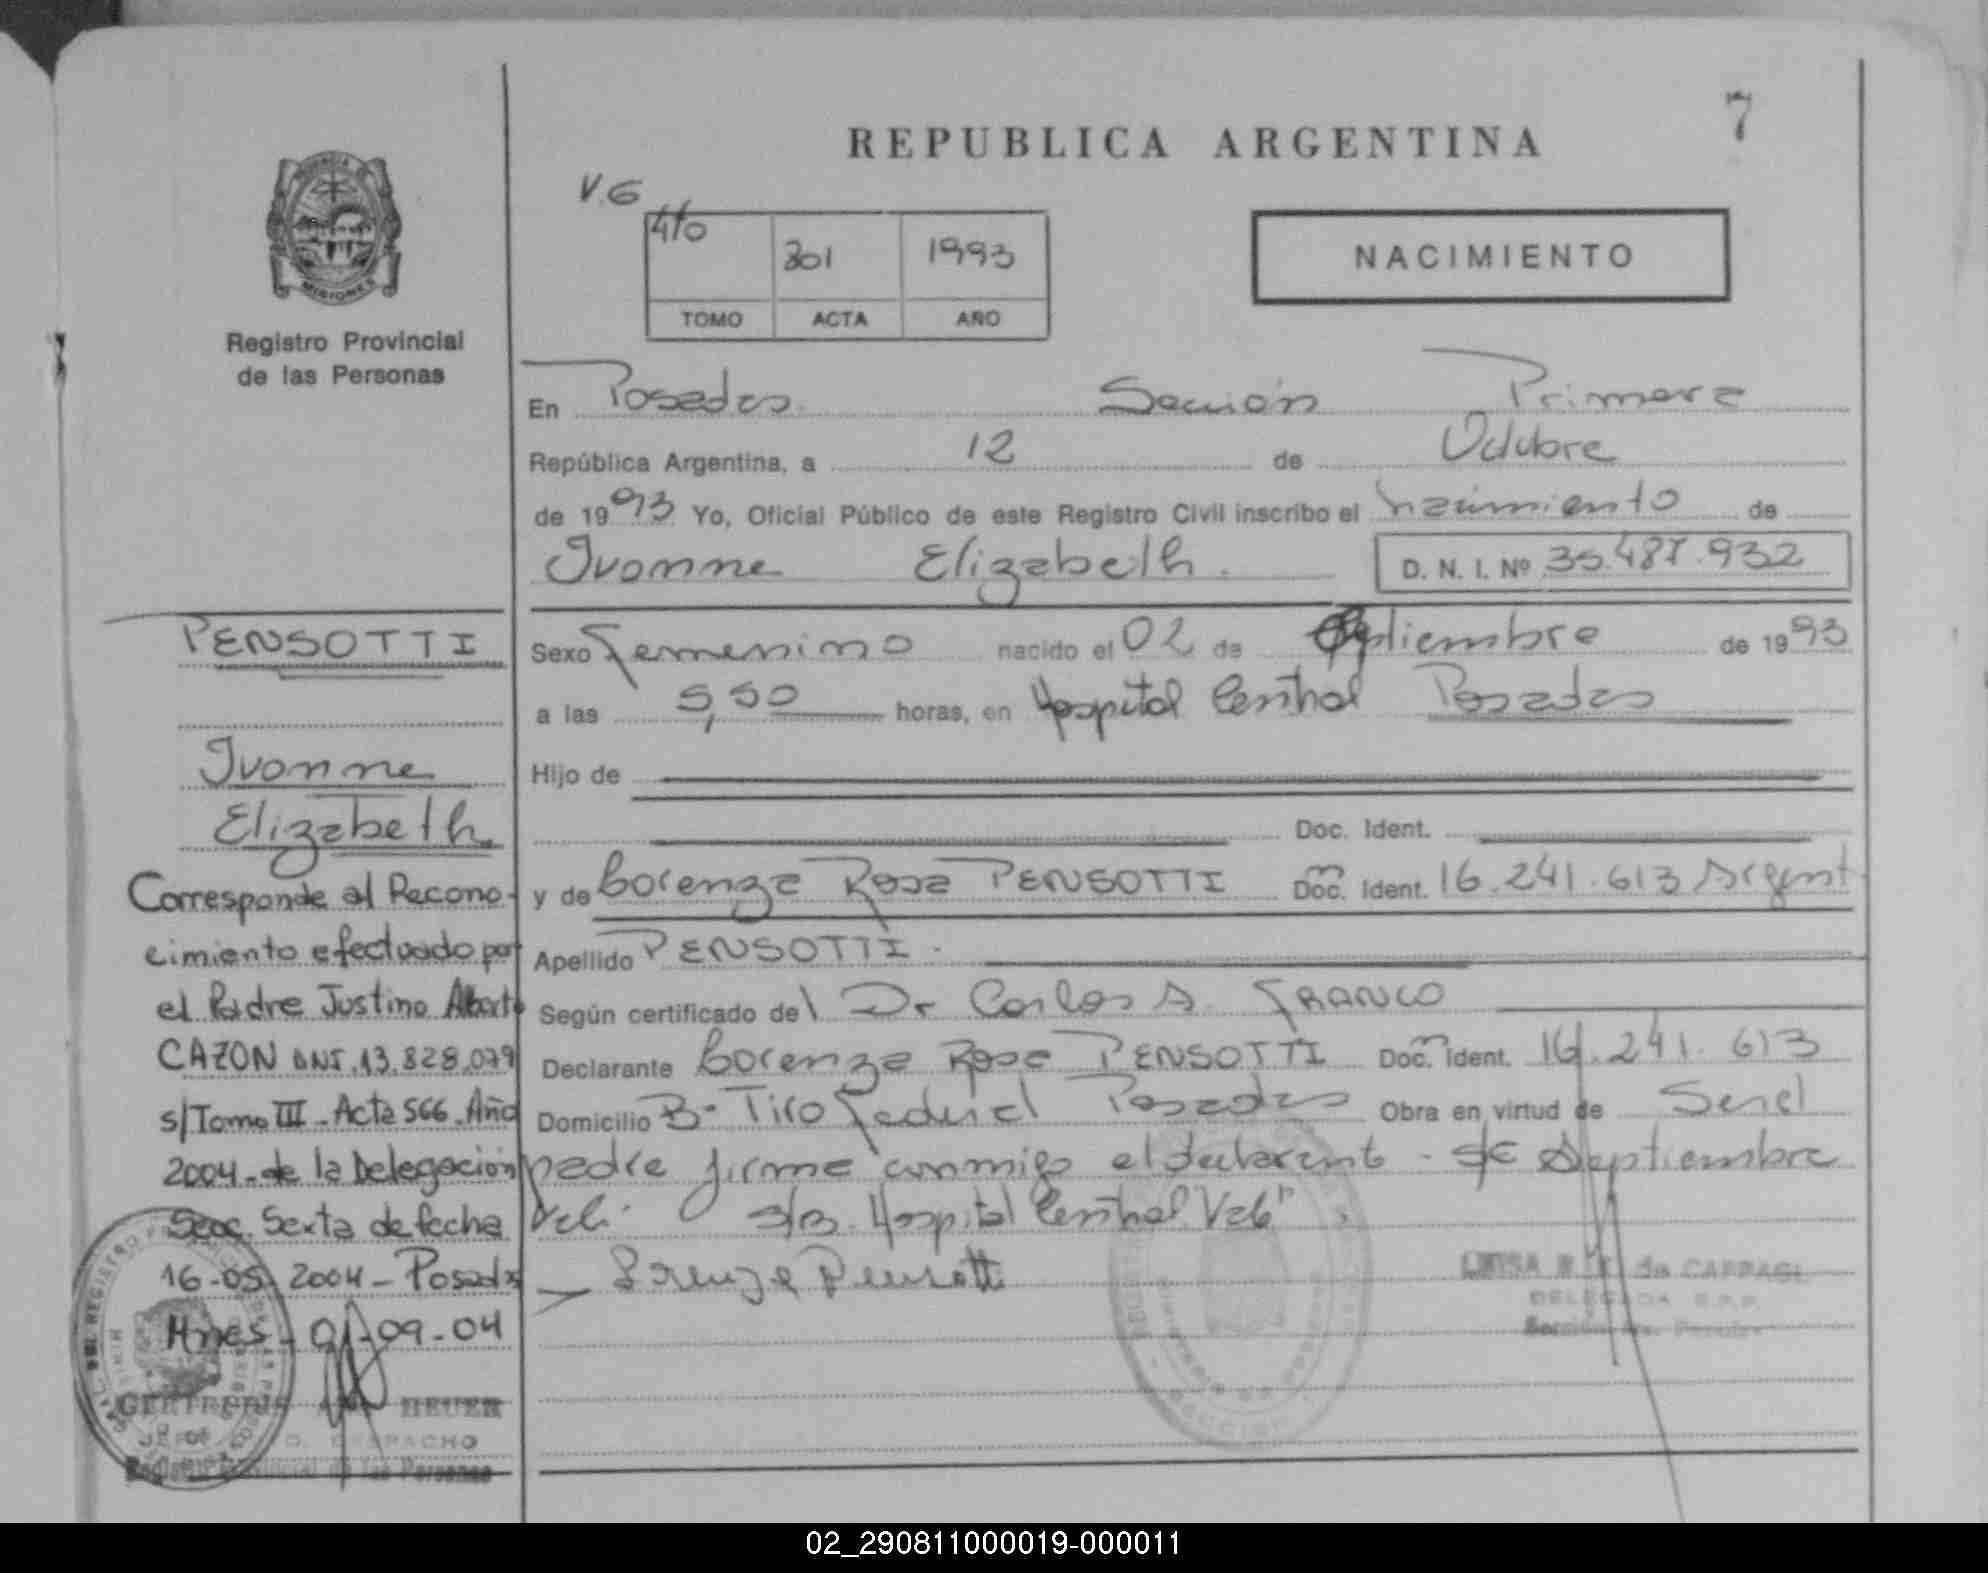 REPUBLICA ARGENTINA
7
PROVINCIA
MISIONES
Registro Provincial
de las Personas
V.6
4to 301 1993
TOMO ACTA AÑO
NACIMIENTO
En Posadas Sección Primera
República Argentina, a 12 de Octubre
de 1993 Yo, Oficial Público de este Registro Civil inscribo el nacimiento de
Ivonne Elizabeth. D. N. I. Nº 35.487.932
Sexo Femenino nacido el 02 de Septiembre de 1993
a las 5,50 horas, en Hospital Central Posadas
Hijo de
Doc. Ident.
y de Lorenza Rosa PENSOTTI Doc. Ident. 16.241.613 Argent
Apellido PENSOTTI.
Según certificado del Dr Carlos A. FRANCO
Declarante Lorenza Rosa PENSOTTI Doc. Ident. 16.241.613
Domicilio Bº Tiro Federal Posadas Obra en virtud de Ser el
padre firma conmigo el declarante - S/E Septiembre
Vale. S/B. Hospital Central Vale
Lorenza Pensotti
de CAPPAGL
DELEGADA R.P.P.
Sección
PENSOTTI
Ivonne
Elizabeth
Corresponde al Recono-
cimiento efectuado por
el Padre Justino Alberto
CAZON DNI.13.828.079
s/Tomo III - Acta 566. Año
2004 - de la Delegación
Secc. Sexta de fecha
16-05-2004 - Posadas
Mnes - 01-09-04
HEUER
JEFE D. DESPACHO
Registro Provincial de las Personas
02_290811000019-000011